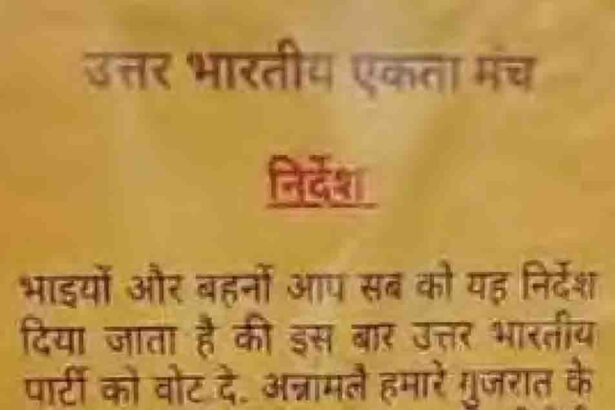 उत्तर भारतीय एकता मंच
निर्देश
भाइयों और बहनों आप सब को यह निर्देश
दिया जाता है की इस बार उत्तर भारतीय
पार्टी को वोट दे. अन्नामलै हमारे गुजरात के